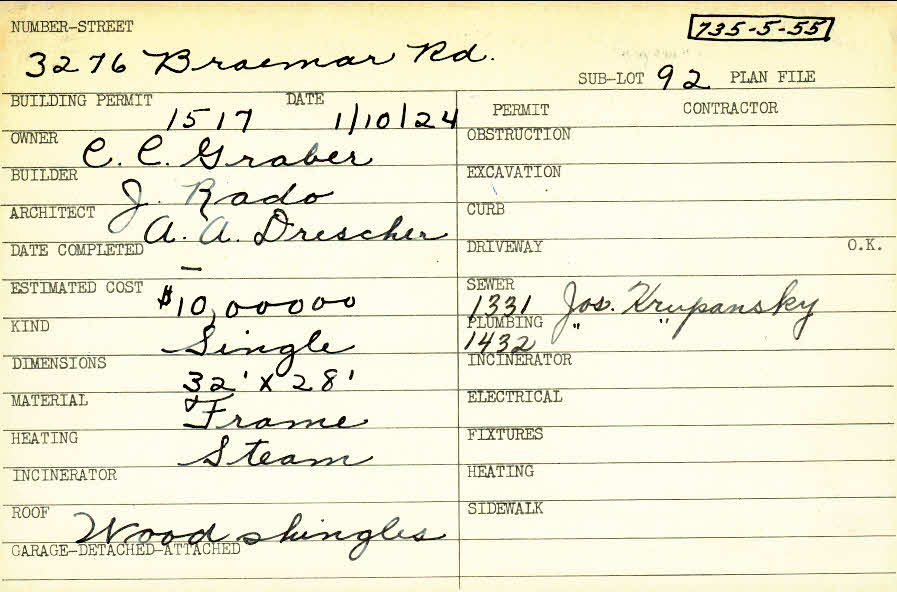 NUMBER-STREET
735-5-55
3276 Braemar Rd.
SUB-LOT 92 PLAN FILE
BUILDING PERMIT 1517 DATE 1/10/24
PERMIT CONTRACTOR
OWNER C. C. Graber
OBSTRUCTION
BUILDER J. Rado
EXCAVATION
ARCHITECT A. A. Drescher
CURB
DATE COMPLETED —
DRIVEWAY O.K.
ESTIMATED COST $10,00000
SEWER 1331 Jos. Krupansky
KIND Single
PLUMBING 1432 " "
DIMENSIONS 32' x 28'
INCINERATOR
MATERIAL Frame
ELECTRICAL
HEATING Steam
FIXTURES
INCINERATOR
HEATING
ROOF Wood shingles
SIDEWALK
GARAGE-DETACHED-ATTACHED